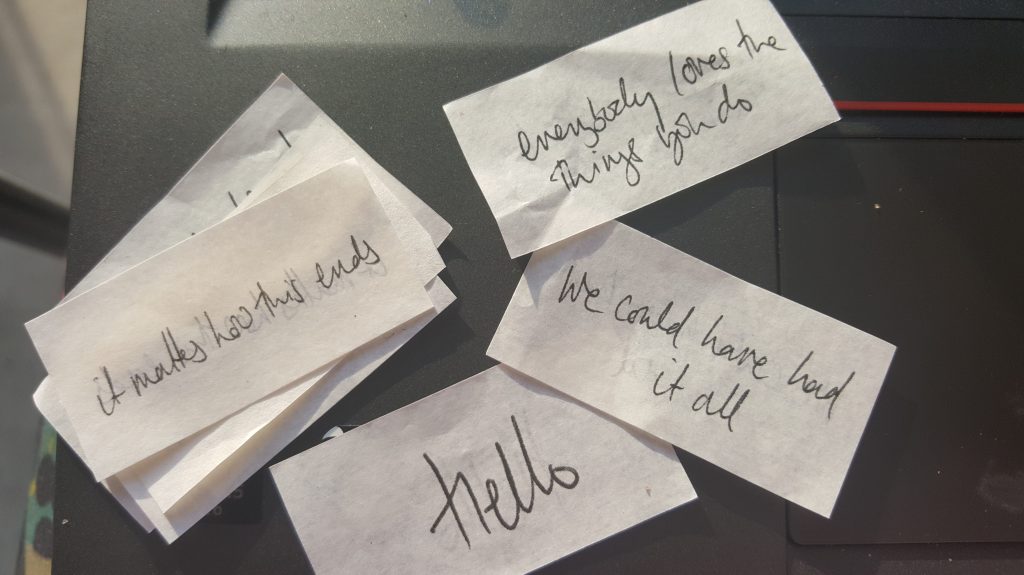 everybody loves the
things you do
it matters how this ends
We could have had
it all
Hello